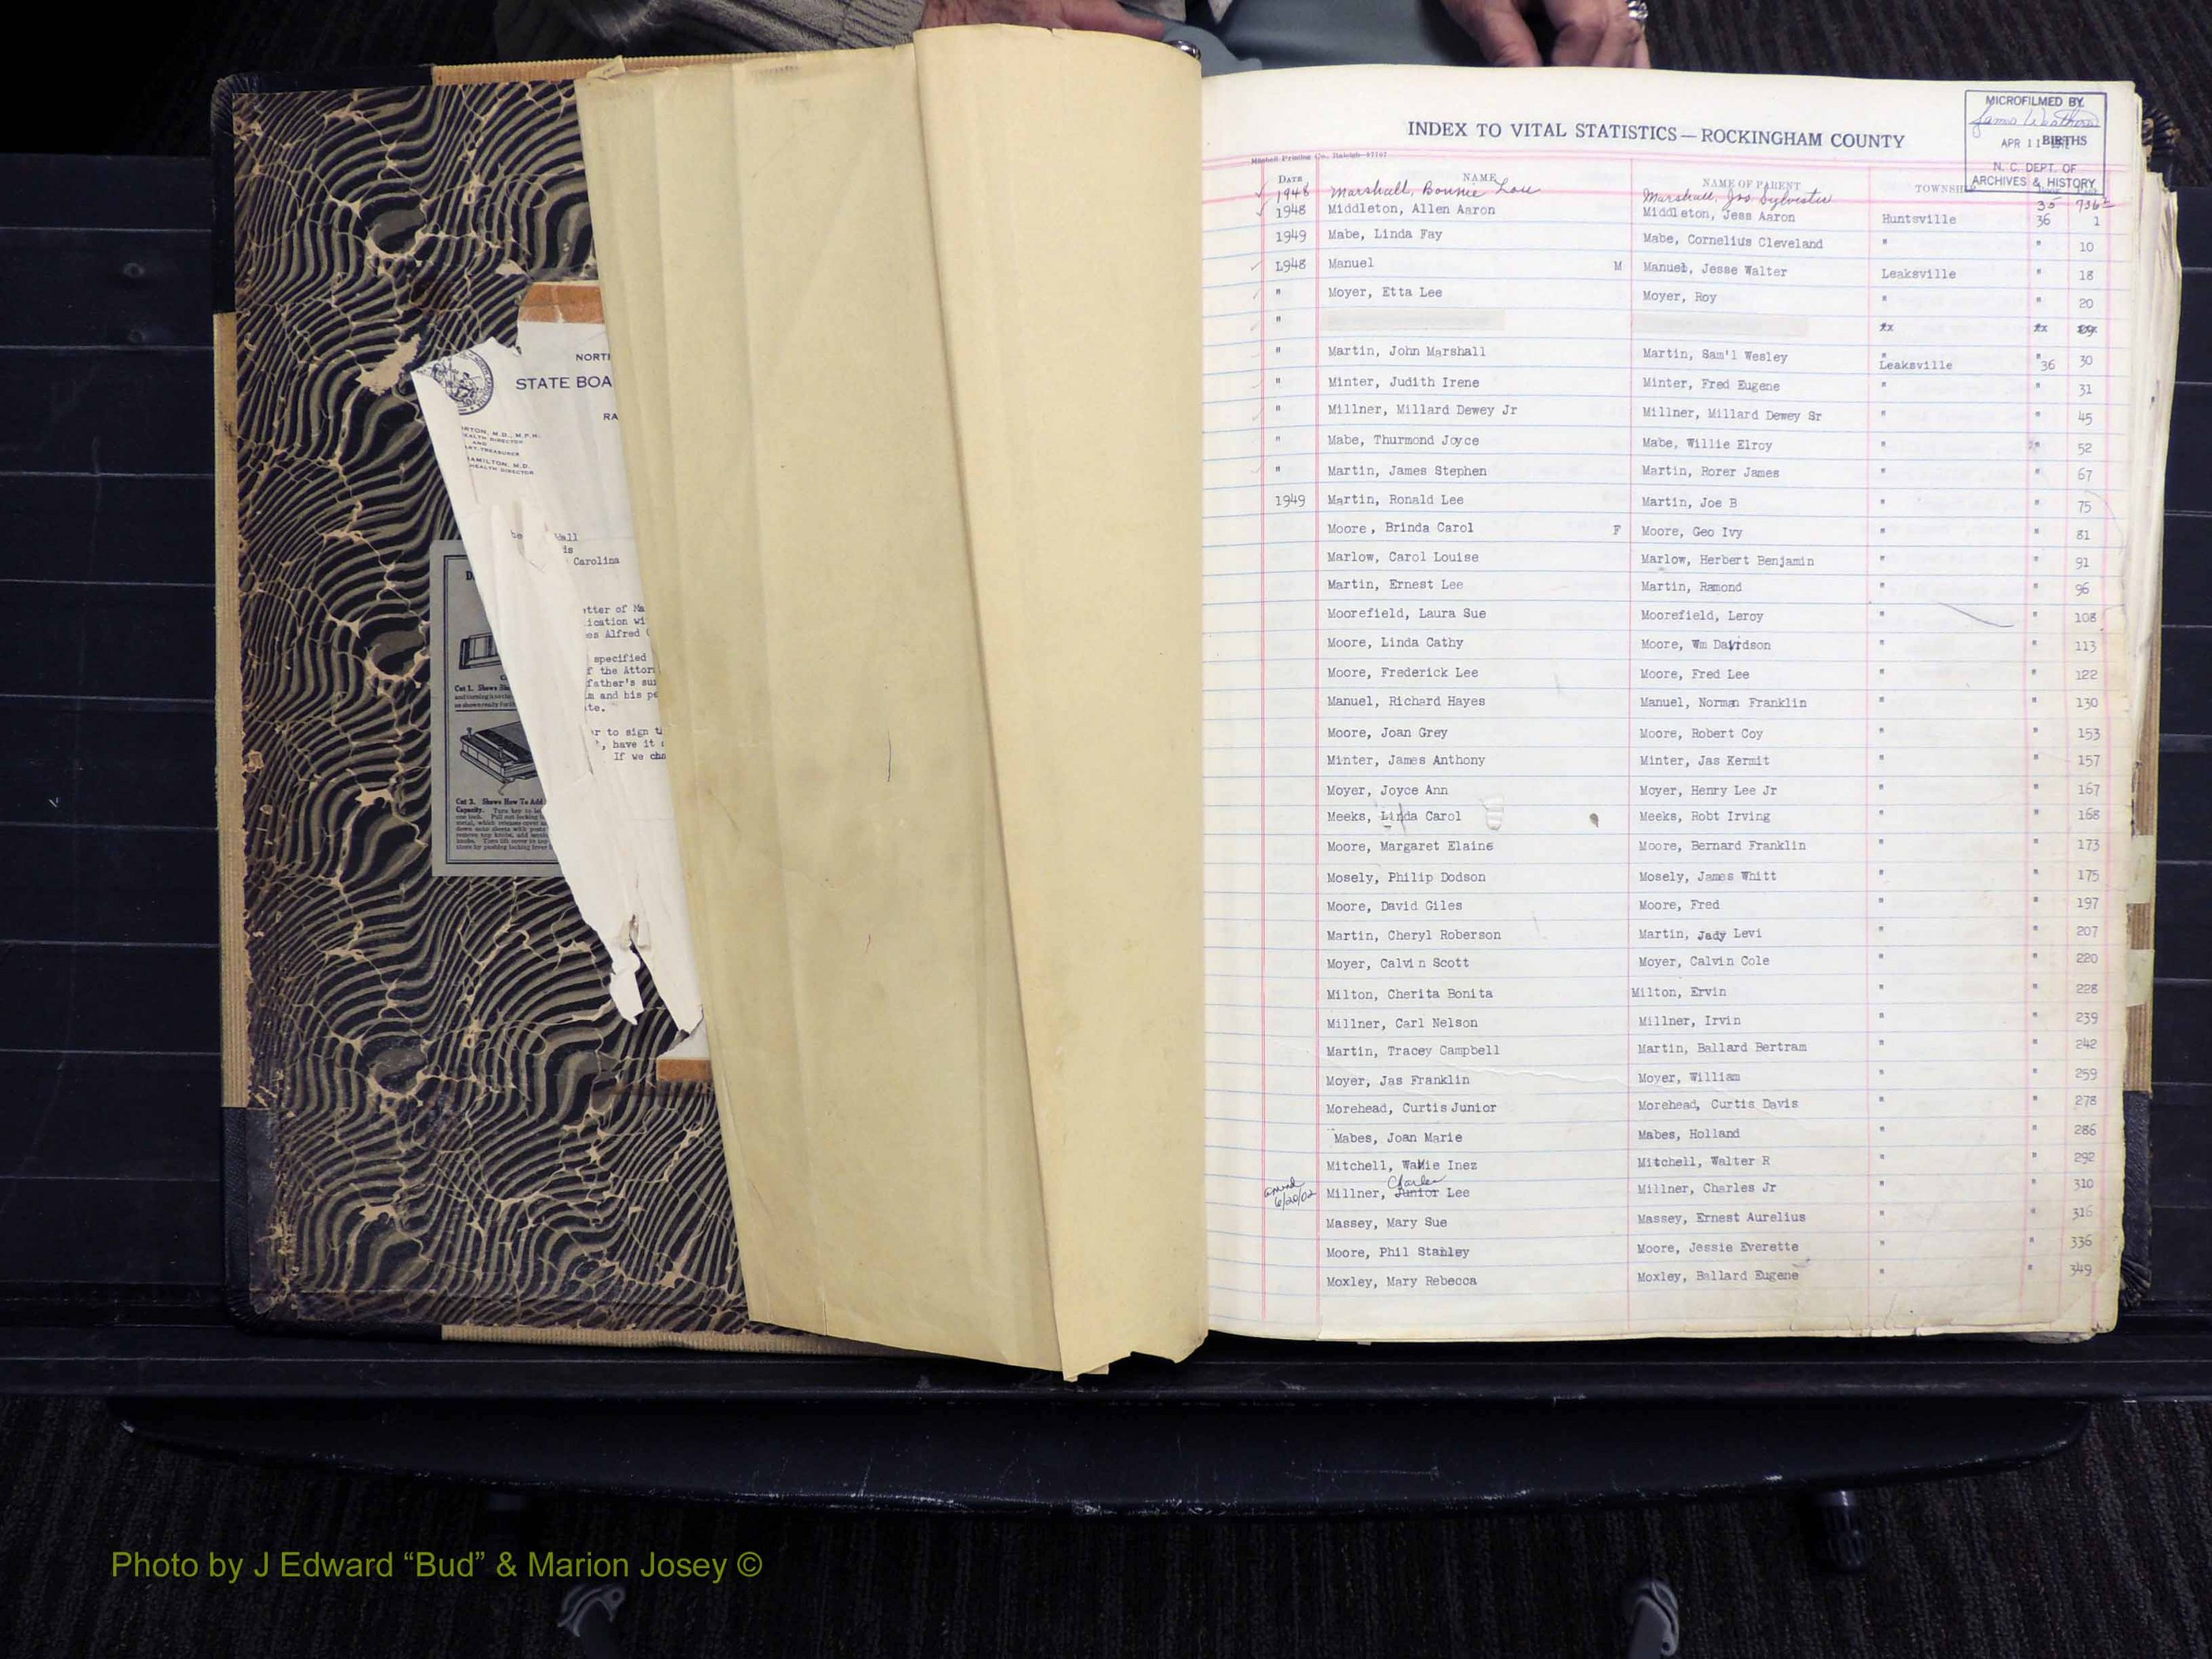 NORTH
STATE BOA
RA
RTON, M.D., M.P.H.
EALTH DIRECTOR
AND
ARY-TREASURER
AMILTON, M.D.
HEALTH DIRECTOR
Wall
ds
Carolina
etter of Ma
lication wi
es Alfred
specified
f the Attor
father's su
m and his pe
te.
r to sign t
, have it
If we cha
Cut 1. Shows
as shown ready for
Cut 3. Shows How To Add
Capacity. Turn key to
INDEX TO VITAL STATISTICS—ROCKINGHAM COUNTY
MICROFILMED BY
APR 11 BIRTHS
N. C. DEPT. OF
ARCHIVES & HISTORY
Mitchell Printing Co., Raleigh
DATE NAME NAME OF PARENT TOWNSHIP
1948 Marshall, Bonnie Lou Marshall, Jas Sylvester 35 736
1948 Middleton, Allen Aaron Middleton, Jess Aaron Huntsville 36 1
1949 Mabe, Linda Fay Mabe, Cornelius Cleveland " " 10
1948 Manuel M Manuel, Jesse Walter Leaksville " 18
" Moyer, Etta Lee Moyer, Roy " " 20
" xx xx 29
" Martin, John Marshall Martin, Sam'l Wesley " Leaksville " 36 30
" Minter, Judith Irene Minter, Fred Eugene " " 31
" Millner, Millard Dewey Jr Millner, Millard Dewey Sr " " 45
" Mabe, Thurmond Joyce Mabe, Willie Elroy " " 52
" Martin, James Stephen Martin, Rorer James " " 67
1949 Martin, Ronald Lee Martin, Joe B " " 75
Moore, Brinda Carol F Moore, Geo Ivy " " 81
Marlow, Carol Louise Marlow, Herbert Benjamin " " 91
Martin, Ernest Lee Martin, Ramond " " 96
Moorefield, Laura Sue Moorefield, Leroy " " 108
Moore, Linda Cathy Moore, Wm Davidson " " 113
Moore, Frederick Lee Moore, Fred Lee " " 122
Manuel, Richard Hayes Manuel, Norman Franklin " " 130
Moore, Joan Grey Moore, Robert Coy " " 153
Minter, James Anthony Minter, Jas Kermit " " 157
Moyer, Joyce Ann Moyer, Henry Lee Jr " " 167
Meeks, Linda Carol Meeks, Robt Irving " " 168
Moore, Margaret Elaine Moore, Bernard Franklin " " 173
Mosely, Philip Dodson Mosely, James Whitt " " 175
Moore, David Giles Moore, Fred " " 197
Martin, Cheryl Roberson Martin, Jady Levi " " 207
Moyer, Calvin Scott Moyer, Calvin Cole " " 220
Milton, Cherita Bonita Milton, Ervin " " 228
Millner, Carl Nelson Millner, Irvin " " 239
Martin, Tracey Campbell Martin, Ballard Bertram " " 242
Moyer, Jas Franklin Moyer, William " " 259
Morehead, Curtis Junior Morehead, Curtis Davis " " 278
Mabes, Joan Marie Mabes, Holland " " 286
Mitchell, Wallie Inez Mitchell, Walter R " " 292
amend 6/20/02 Millner, Junior Charles Lee Millner, Charles Jr " " 310
Massey, Mary Sue Massey, Ernest Aurelius " " 316
Moore, Phil Stanley Moore, Jessie Everette " " 336
Moxley, Mary Rebecca Moxley, Ballard Eugene " " 349
Photo by J Edward “Bud” & Marion Josey ©